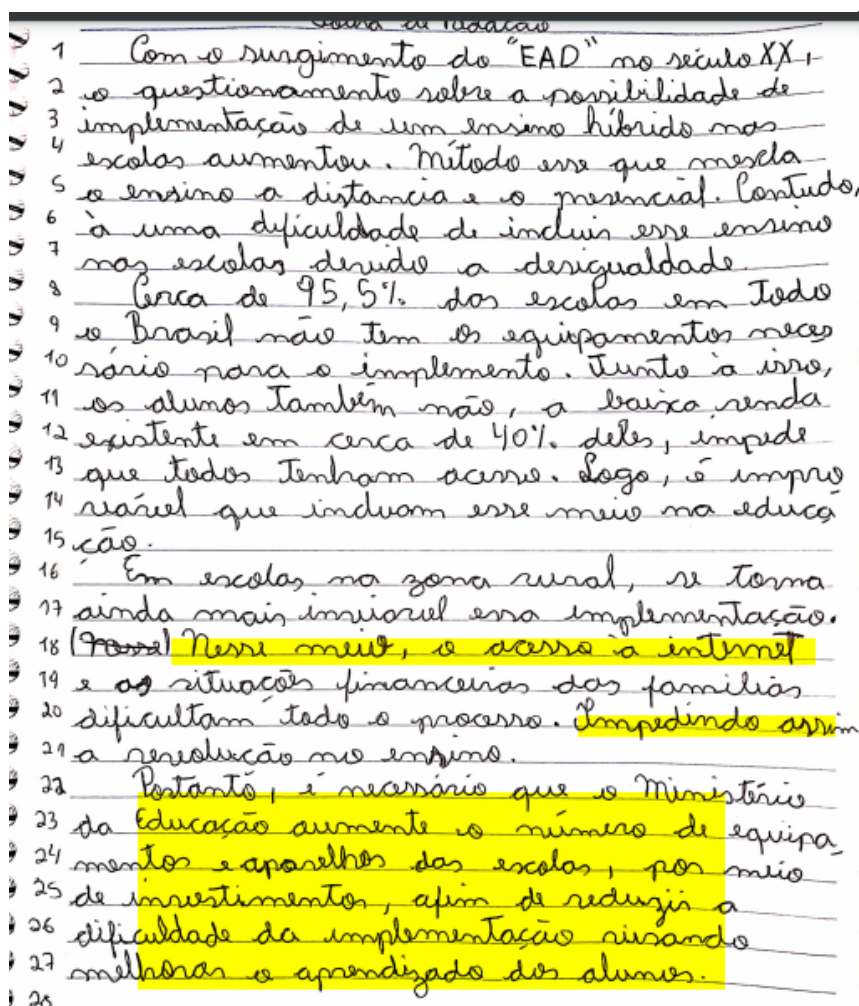 Folha de redação
1 Com o surgimento do "EAD" no século XX,
2 o questionamento sobre a possibilidade de
3 implementação de um ensino híbrido nas
4 escolas aumentou. Método esse que mescla
5 o ensino a distancia e o presencial. Contudo,
6 à uma dificuldade de incluir esse ensino
7 nas escolas devido a desigualdade.
8 Cerca de 95,5% das escolas em todo
9 o Brasil não tem os equipamentos neces
10 sário para o implemento. Junto à isso,
11 os alunos também não, a baixa renda
12 existente em cerca de 40% deles, impede
13 que todos tenham acesso. Logo, é impro
14 viável que incluam esse meio na educa
15 ção.
16 Em escolas na zona rural, se torna
17 ainda mais inviavel essa implementação.
18 (Nesse) Nesse meio, o acesso à internet
19 e as situações financeiras das famílias
20 dificultam todo o processo. Impedindo assim
21 a revolução no ensino.
22 Portanto, é necessário que o Ministério
23 da Educação aumente o número de equipa
24 mentos e aparelhos das escolas, por meio
25 de investimentos, afim de reduzir a
26 dificuldade da implementação visando
27 melhorar o aprendizado dos alunos.
28